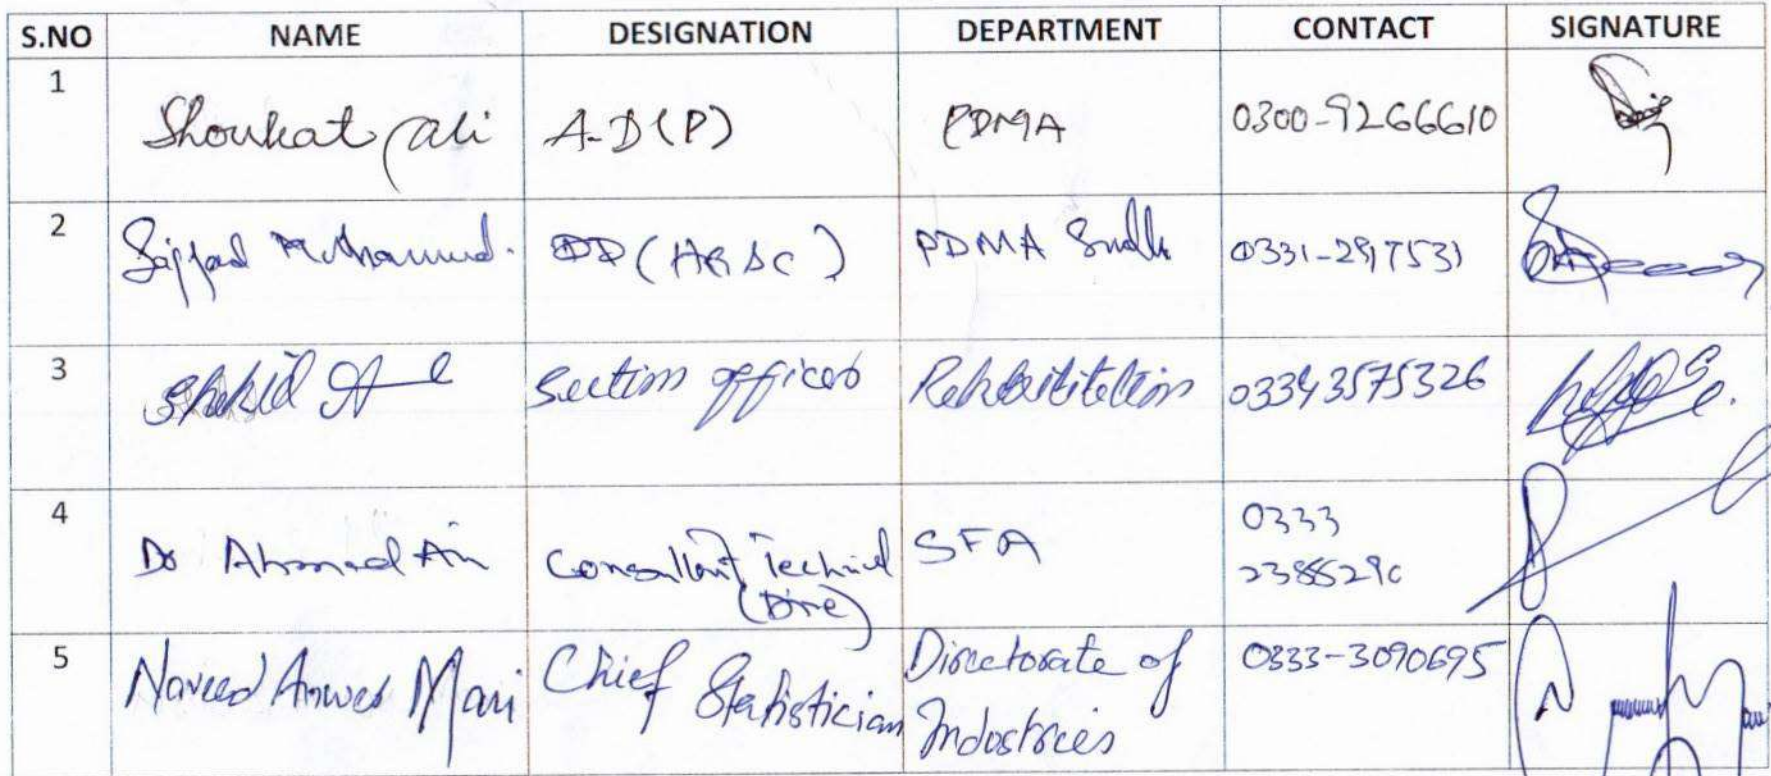 S.NO NAME DESIGNATION DEPARTMENT CONTACT SIGNATURE
1 Shoukat Ali A-D(P) PDMA 0300-9266610
2 Sajjad Muhammad. DD( ) PDMA Sindh 0331-2917531
3 Shahid Section officer Rehabilitation 03343575326
4 Dr Ahmad Consultant Technical SFA 0333
5 Naveed Anwer Mari Chief Statistician Directorate of Industries 0333-3090695